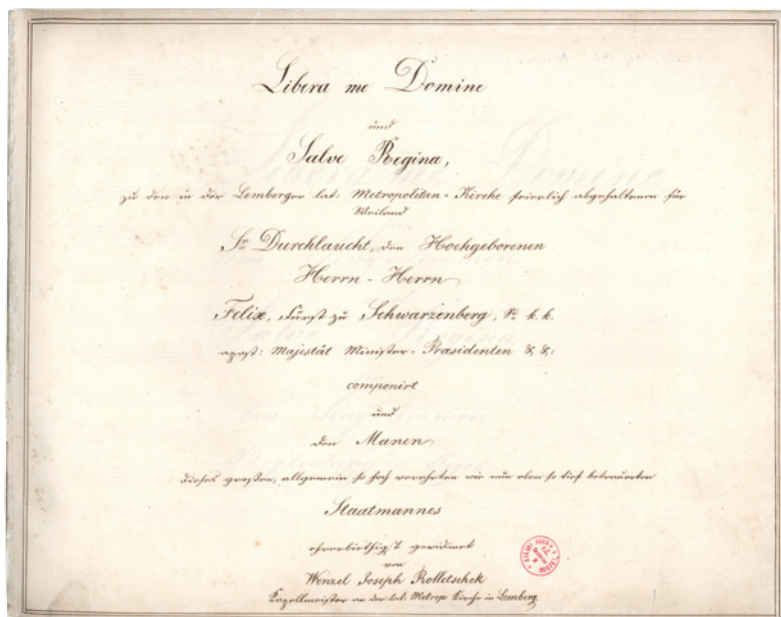 Libera me Domine
und
Salve Regina,
zu den in der Lemberger lat: Metropolitan=Kirche feierlich abgehaltenen für
Weiland
Sr Durchlaucht, den Hochgeborenen
Herrn - Herrn
Felix, Fürst zu Schwarzenberg, Sr k. k.
apost: Majestät Minister-Praesidenten &, &:
componirt
und
den Manen
dieses großen, allgemein so hoch verehrten wie nun eben so tief betrauerten
Staatmannes
ehrerbiethigst gewidmet
von
Wenzel Joseph Rolletschek
Kapellmeister an der lat: Metrop Kirche in Lemberg